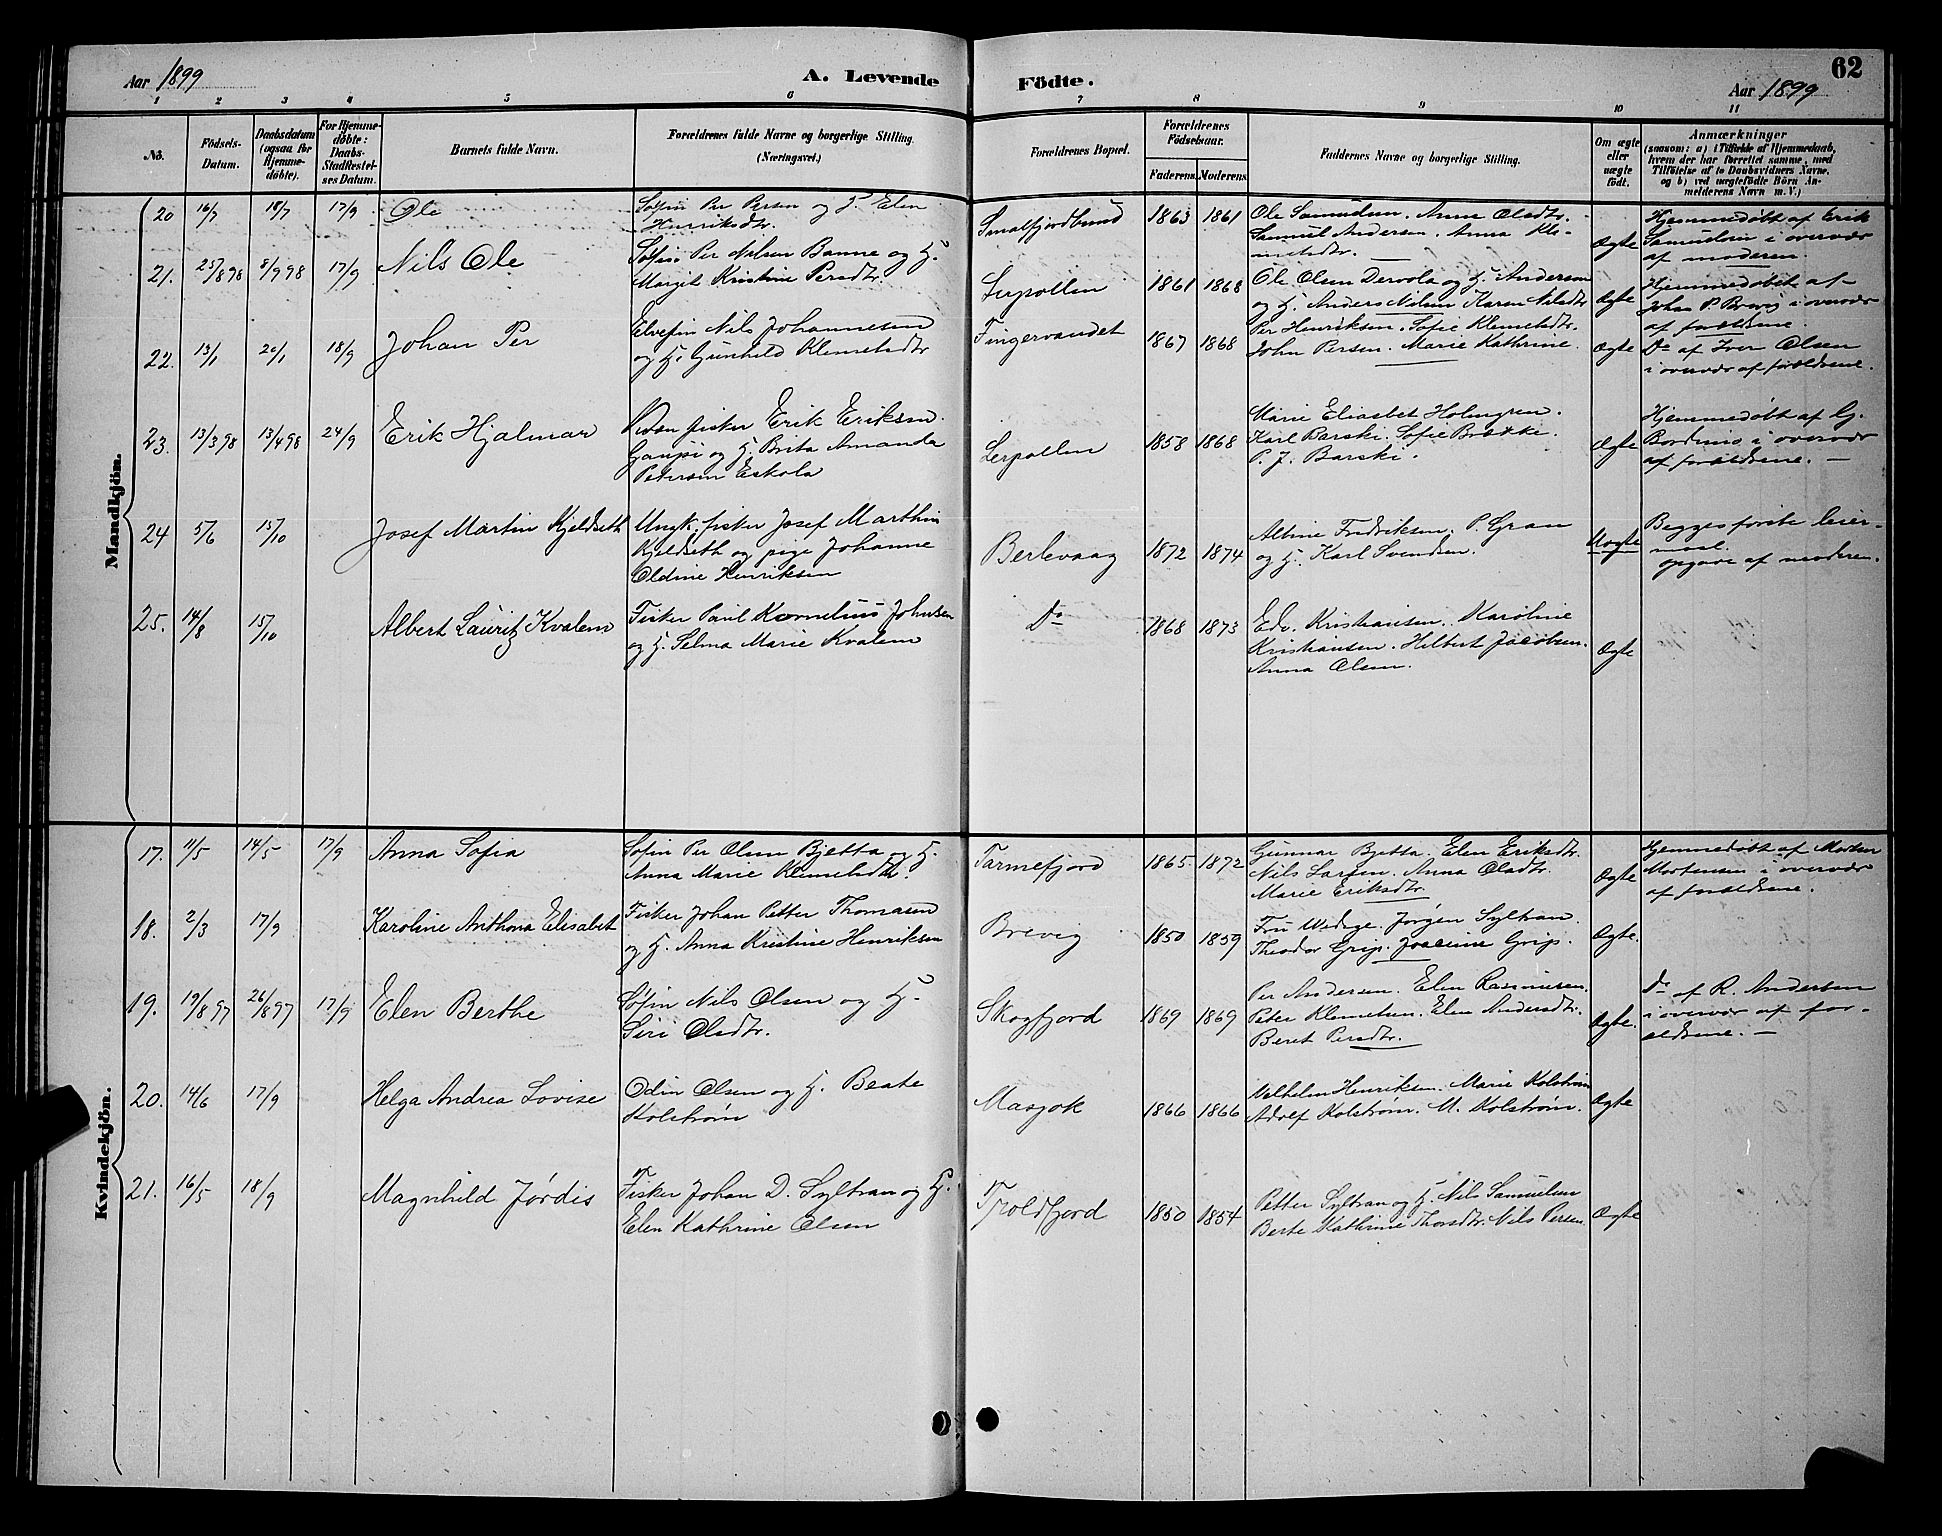 Aar 1899
A. Levende Födte.
Aar 1899
62
1 2 3 4 5 6 7 8 9 10 11
No.
Födsels-
Datum.
Daabsdatum
(ogsaa for
Hjemme-
døbte).
For Hjemme-
döbte:
Daabs-
Stadfæstel-
ses Datum.
Barnets fulde Navn.
Forældrenes fulde Navne og borgerlige Stilling.
(Næringsvei.)
Forældrenes Bopæl.
Forældrenes
Födselsaar.
Faderens. Moderens.
Faddernes Navne og borgerlige Stilling.
Om ægte
eller
uægte
födt.
Anmærkninger
(saasom: a) i Tilfælde af Hjemmedaab,
hvem der har forrettet samme, med
Tilföielse af to Daabsvidners Navne,
og b) ved uægtefödte Börn An-
melderens Navn m. V.)
Mandkjön.
20 16/7 18/7 17/9 Ole
Søfin Per Persen og H. Elen
Henriksdtr.
Smalfjordbund 1863 1861
Ole Samuelsen. Anne Olsdtr.
Samuel Andersen. Anna Kle-
metsdtr.
Ægte
Hjemmedøbt af Erik
Samuelsen i overvær
af moderen.
21. 25/8 98 8/9 98 17/9 Nils Ole
Søfin Per Nilsen Banne og H.
Margit Kristine Persdtr
Lerpollen 1861 1868
Ole Olsen Dervola og H. Andersen
og H. Anders Nilsen Karen Nilsdtr
Ægte
Hjemmedøbt af
Johan P. Brevig i overvær
af forældrene.
22. 13/1 20/1 18/9 Johan Per
Elvefin Nils Johannesen
og H. Gunhild Klemetsdtr
Fingervandet 1867 1868
Per Henriksen. Sofie Klemetsdtr.
John Persen. Marie Kathrine.
Ægte
Do af Iver Olsen
i overvær af forældrene.
23. 13/3 98 13/4 98 24/9 Erik Hjalmar
Kvæn fisker Erik Eriksen
Gaupi og H. Brita Amanda
Petersen Eskola
Lerpollen 1858 1868
Marie Eliasbet Holmgren.
Karl Barski. Sofie Brække.
P. J. Barski.
Ægte
Hjemmedøbt af G.
Bordmo i overvær
af forældrene.
24 5/6 15/10 Josef Martin Kjeldseth
Ungk. fisker Josef Marthin
Kjeldseth og pige Johanne
Oldine Henriksen
Berlevaag 1872 1874
Albine Fredriksen. P. Gran
og H. Karl Svendsen.
Uægte
Begges første leier-
maal.
opgave af moderen.
25. 14/8 15/10 Albert Lauritz Kvalem
Fisker Paul Kornelius Johnsen
og H. Selma Marie Kvalem
Do 1868 1873
Edv. Kristiansen. Karoline
Kristiansen. Hilbert Jacobsen.
Anna Olsen.
Ægte
Kvindekjön.
17. 11/5 14/5 17/9 Anna Sofia
Søfin Per Olsen Bjetta og H.
Anna Marie Klemetsdtr.
Tarmefjord 1865 1872
Gunnar Bjetta. Elen Eriksdtr.
Nils Larsen. Anna Olsdtr.
Marie Eriksdtr.
Ægte
Hjemmedøbt af Morten
Mortensen i overvær
af forældrene.
18. 2/3 17/9 Karoline Anthona Elisabet
Fisker Johan Petter Thomasen
og H. Anna Kristine Henriksen
Brevig 1850 1859
Fru Wedge. Jørgen Syltran.
Theodor Grip. Joacime Grip.
Ægte.
19. 19/8 97 26/8 97 17/9 Elen Berthe
Søfin Nils Olsen og H.
Siri Olsdtr.
Skogfjord 1869 1869
Per Andersen. Elen Rasmusen.
Peter Klemetsen. Elen Andersdtr.
Beret Persdtr.
Ægte.
Do af R. Andersen
i overvær af for-
ældrene.
20. 14/6 17/9 Helga Andrea Lovise
Odin Olsen og H. Beate
Kolstrøm
Masjok 1866 1866
Vilhelm Henriksen. Marie Kolstrøm
Adolf Kolstrøm. M. Kolstrøm.
Ægte
21. 16/5 18/9 Magnhild Jørdis
Fisker Johan D. Syltran og H.
Elen Kathrine Olsen
Troldfjord 1850 1854
Petter Syltran og H. Nils Samuelsen
Berte Kathrine Thorsdtr. Nils Persen.
Ægte